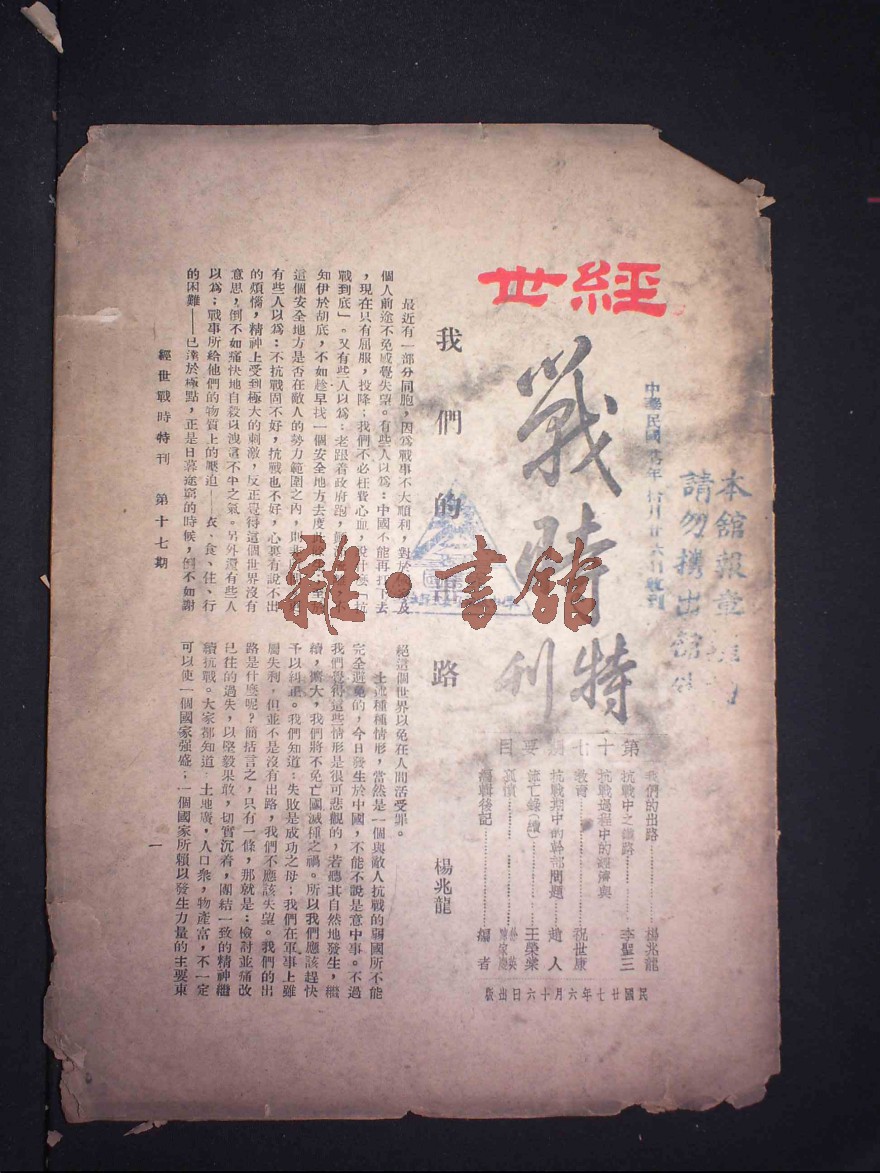 經世
戰時特刊
中華民國
收刊
本舘報章
請勿携出舘外
第十七期要目
我們的出路 楊兆龍
抗戰中之鐵路 李聖三
抗戰過程中的經濟與
教育 祝世康
抗戰期中的幹部問題 趙人
流亡錄(續) 王榮棠
編輯後記 編者
民國廿七年六月十六日出版
我們的出路
楊兆龍
最近有一部分同胞,因爲戰事不大順利,對於
個人前途不免感覺失望。有些人以爲:中國不能再打下去
,現在只有屈服,投降;我們不必枉費心血,說什麼「抗
戰到底」。又有些人以爲:老跟着政府跑,
知伊於胡底,不如趁早找一個安全地方去度
這個安全地方是否在敵人的勢力範圍之內,則
有些人以爲:不抗戰固不好,抗戰也不好,心裏有說不出
的煩惱,精神上受到極大的刺激,反正覺得這個世界沒有
意思,倒不如痛快地自殺以洩這不平之氣。另外還有些人
以爲;戰事所給他們的物質上的壓迫——衣、食、住、行
的困難——已達於極點,正是日暮途窮的時候,倒不如謝
絕這個世界以免在人間活受罪。
上述種種情形,當然是一個與敵人抗戰的弱國所不能
完全避免的,今日發生於中國,不能不說是意中事。不過
我們覺得這些情形是很可悲觀的,若聽其自然地發生,繼
續,擴大,我們將不免亡國滅種之禍。所以我們應該趕快
予以糾正。我們知道:失敗是成功之母;我們在軍事上雖
屬失利,但並不是沒有出路,我們不應該失望。我們的出
路是什麼呢?簡括言之,只有一條,那就是:檢討並痛改
已往的過失,以堅毅果敢,切實沉着,團結一致的精神繼
續抗戰。大家都知道:土地廣,人口衆,物產富,不一定
可以使一個國家强盛;一個國家所賴以發生力量的主要東
經世戰時特刊 第十七期 一
雜·書館